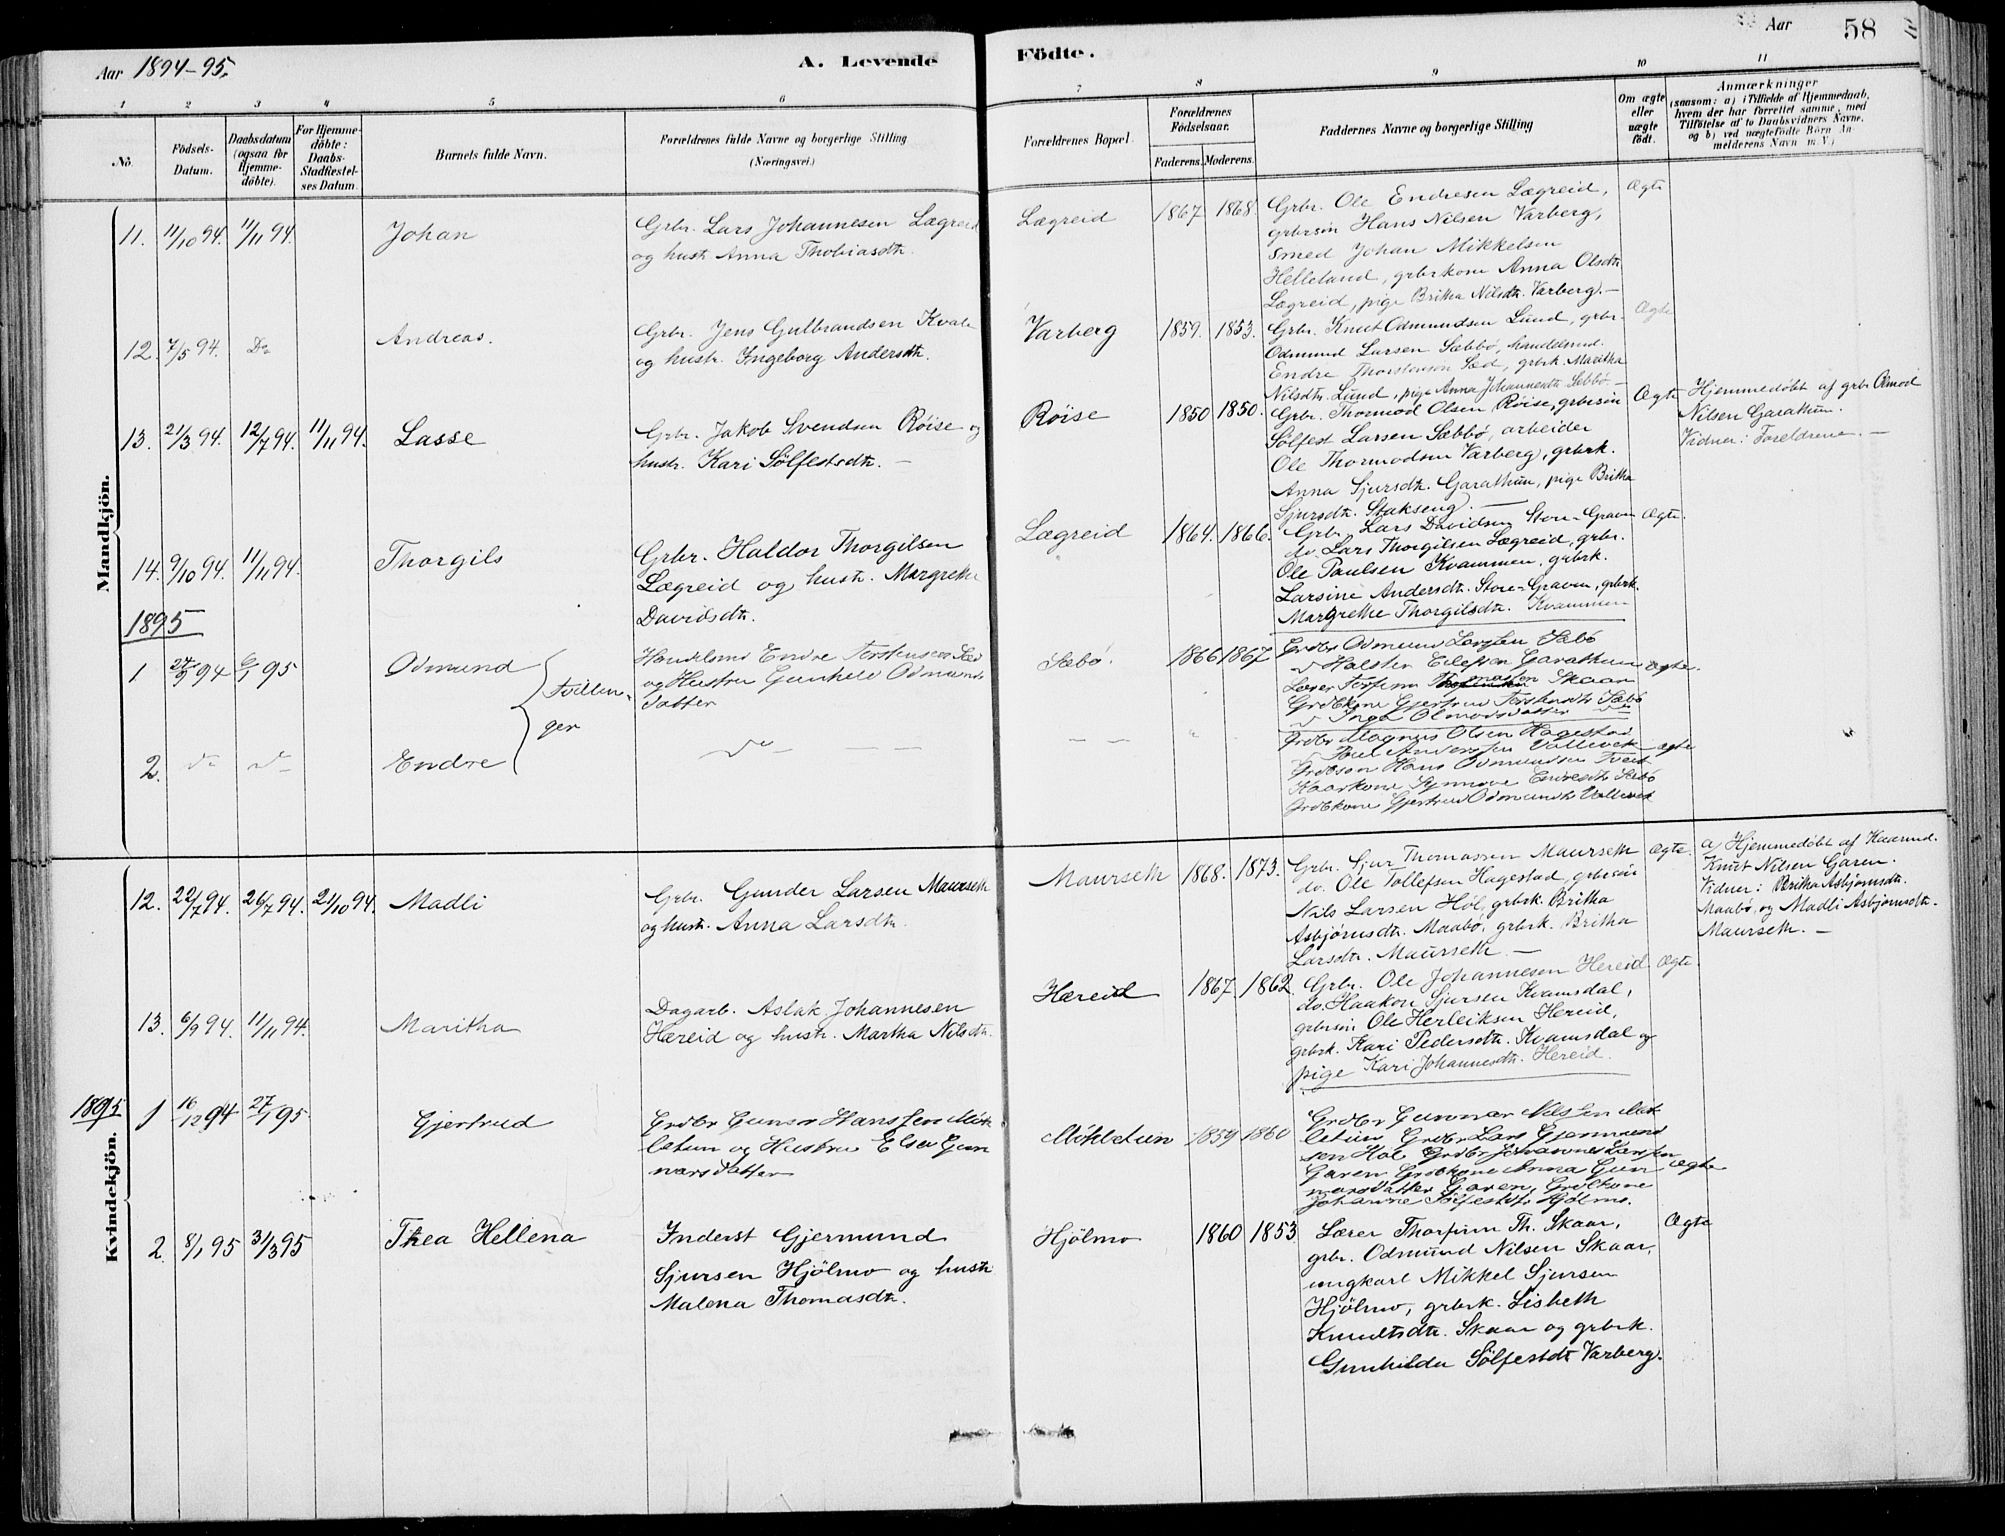 Aar 1894-95.
A. Levende Födte.
Aar
58
1 2 3 4 5 6 7 8 9 10 11
No.
Födsels-Datum.
Daabsdatum (ogsaa for Hjemmedöbte).
For Hjemmedöbte: Daabs-Stadfæstelses Datum.
Barnets fulde Navn.
Forældrenes fulde Navne og borgerlige Stilling (Næringsvei.)
Forældrenes Bopæl.
Forældrenes Födselsaar.
Faderens. Moderens.
Faddernes Navne og borgerlige Stilling
Om ægte eller uægte födt.
Anmærkninger
(saasom: a) i Tilfælde af Hjemmedaab,
hvem der har forrettet samme, med
Tilföielse af to Daabsvidners Navne.
og b) ved uægtefödte Börn An-
melderens Navn m. V.)
Mandkjön.
11. 11/10 94. 11/11 94.
Johan
Grbr. Lars Johannesen Lægreid
og hustr. Anna Thobiasdtr.
Lægreid
1867. 1868.
Grbr. Ole Endresen Lægreid,
grbrsön Hans Nilsen Varberg,
Smed Johan Mikkelsen
Helleland, grbrkone Anna Olsdtr.
Lægreid, pige Britha Nilsdtr. Varberg.-
Ægte
12. 7/5 94. Do
Andreas.
Grbr. Jens Gulbrandsen Kvale
og hustr. Ingeborg Andersdtr.
Varberg
1859. 1853.
Grbr. Knut Odmundsen Lund, grbr.
Odmund Larsen Sæbbö, handelsmd.
Endre Thorstensen Sæd, grbrk. Maritha
Nilsdtr. Lund, pige Anna Johannesdtr. Sæbbö.-
Ægte
13. 21/3 94. 12/7 94. 11/11 94.
Lasse
Grbr. Jakob Svendsen Röise og
hustr. Kari Sölfestsdtr. -
Röise
1850 1850.
Grbr. Thormod Olsen Röise, grbrsön
Sölfest Larsen Sæbbö, arbeider
Ole Thormodsen Varberg, grbrk.
Anna Sjursdtr. Garathun, pige Britha
Sjursdtr. Stakseng. -
Ægte
Hjemmedöbt af grbr. Olmod
Nilsen Garathun.
Vidner: Forældrene. -
14. 9/10 94. 11/11 94.
Thorgils
Grbr. Haldor Thorgilsen
Lægreid og hustr. Margrethe
Davidsdtr.
Lægreid
1864. 1866.
Grbr. Lars Davidsen Store-Graven
do. Lars Thorgilsen Lægreid, grbr.
Ole Paulsen Kvammen, grbrk.
Larsine Andersdtr. Store-Graven, grbrk.
Margrethe Thorgilsdtr. Kvammen
Ægte.
1895
1 94 6/1 95
Odmund
Tvillinger
Handelsmd Endre Torstensen Sæd
og Hustru Gunhild Odmunds
datter
Sæbö.
1866 1867
Grdbr Odmund Larssen Sæbö
Halsten Eilefsen Garathun
Lærer Torfinn Thomassen Skaar
Grdbkone Gjertrud Torstensdtr Sæbö
Inga Olmodsdatter
Ægte.
2. do do
Endre
do
Grdbr Magnus Olsen Hagestad
Poul Anderssen Vollevik
Grdbrson Hans Odmundsen Tveit
Kaarkone Synnove Endresdtr Sæbö
Grdbkone Gjertrud Odmundsdtr Vollevik
ægte
Kvindekjön.
12. 22/7 94. 26/7 94. 21/10 94.
Madli
Grbr. Gunder Larsen Maurseth
og hustr. Anna Larsdtr.
Maurseth
1868. 1873.
Grbr. Sjur Thomassen Maurseth
do. Ole Tollefsen Hagestad, grbrsön
Nils Larsen Höl, grbrk. Britha
Asbjörnsdtr. Maabö, grbrk. Britha
Larsdtr. Maurseth. -
Ægte.
a) Hjemmedöbt af Kaarmd.
Knut Nilsen Garen.
Vidner: Britha Asbjörnsdtr.
Maabö, og Madli Asbjörnsdtr.
Maurseth. -
13. 6/9 94. 11/11 94.
Maritha
Dagarb. Aslak Johannesen
Hæreid og hustr. Martha Nilsdtr.
Hæreid
1867. 1862.
Grbr. Ole Johannesen Hereid
do. Haakon Sjursen Kvamsdal,
grbrsön Ole Herleiksen Hereid,
grbrk. Kari Pedersdtr. Kvamsdal og
pige Kari Johannesdtr. Hereid.
Ægte.
1895
1 16/12 94 27/1 95
Gjertrud
Grdbr Gunnar Hanssen Mök
letun og Hustru Elsa Gun
narsdatter
Mökletun
1859 1860
Grdbr Gunnar Nilssen Mök
letun Grdbr Lars Gjermund
sen Hol Grdbr Johannes Larssen
Garen Grdbkone Anna Gun
narsdatter Garen, Grdbkone
Johanne Sölfestdtr Hjölmo.
Ægte
2. 8/1 95 31/3 95
Thea Hellena
Inderst Gjermund
Sjursen Hjölmo og hustr.
Malena Thomasdtr.
Hjölmo
1860 1853
Lærer Thorfinn Th. Skaar,
grbr. Odmund Nilsen Skaar,
ungkarl Mikkel Sjursen
Hjölmo, grbrk. Lisbeth
Knudtsdtr. Skaar og grbrk.
Gunhilda Sölfestdtr Varberg.
Ægte